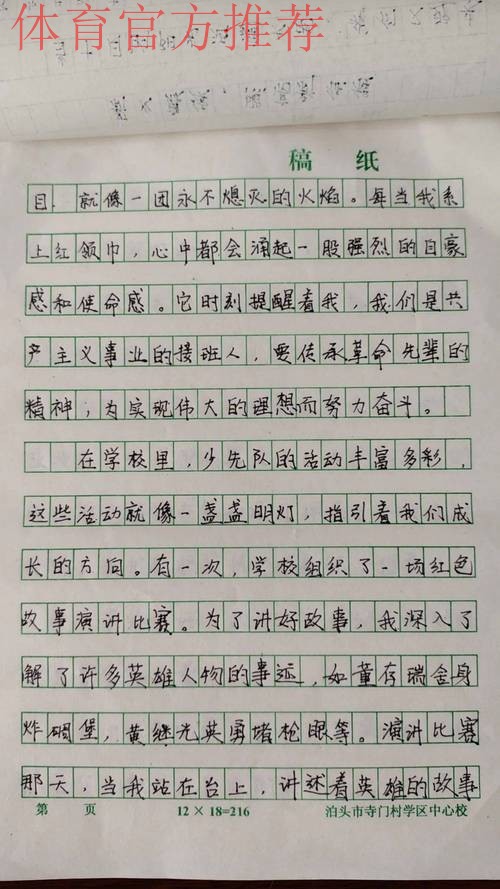 体育官方推荐
稿 纸
目，就像一团永不熄灭的火焰。每当我系
上红领巾，心中都会涌起一股强烈的自豪
感和使命感。它时刻提醒着我，我们是共
产主义事业的接班人，要传承革命先辈的
精神，为实现伟大的理想而努力奋斗。
在学校里，少先队的活动丰富多彩，
这些活动就像一盏盏明灯，指引着我们成
长的方向。有一次，学校组织了一场红色
故事演讲比赛。为了讲好故事，我深入了
解了许多英雄人物的事迹，如董存瑞舍身
炸碉堡，黄继光英勇堵枪眼等。演讲比赛
那天，当我站在台上，讲述着英雄的故事
第 页 12×18=216 泊头市寺门村学区中心校